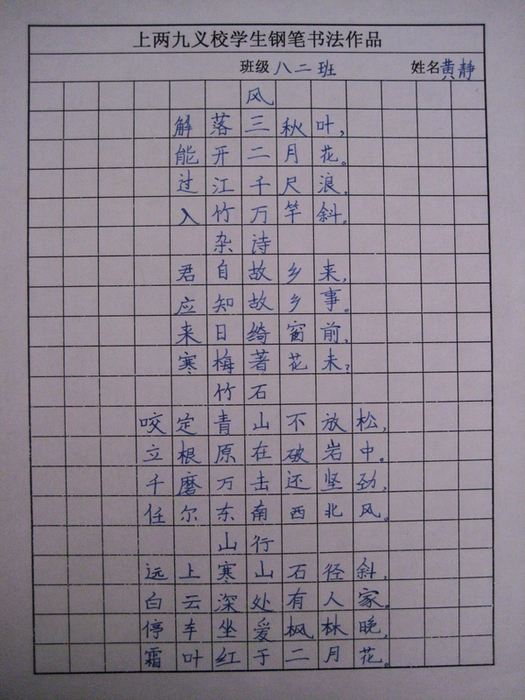 上两九义校学生钢笔书法作品
班级八二班 姓名黄静
风
解落三秋叶,
能开二月花。
过江千尺浪,
入竹万竿斜。
杂诗
君自故乡来,
应知故乡事。
来日绮窗前,
寒梅著花未?
竹石
咬定青山不放松,
立根原在破岩中。
千磨万击还坚劲,
任尔东南西北风。
山行
远上寒山石径斜,
白云深处有人家。
停车坐爱枫林晚,
霜叶红于二月花。